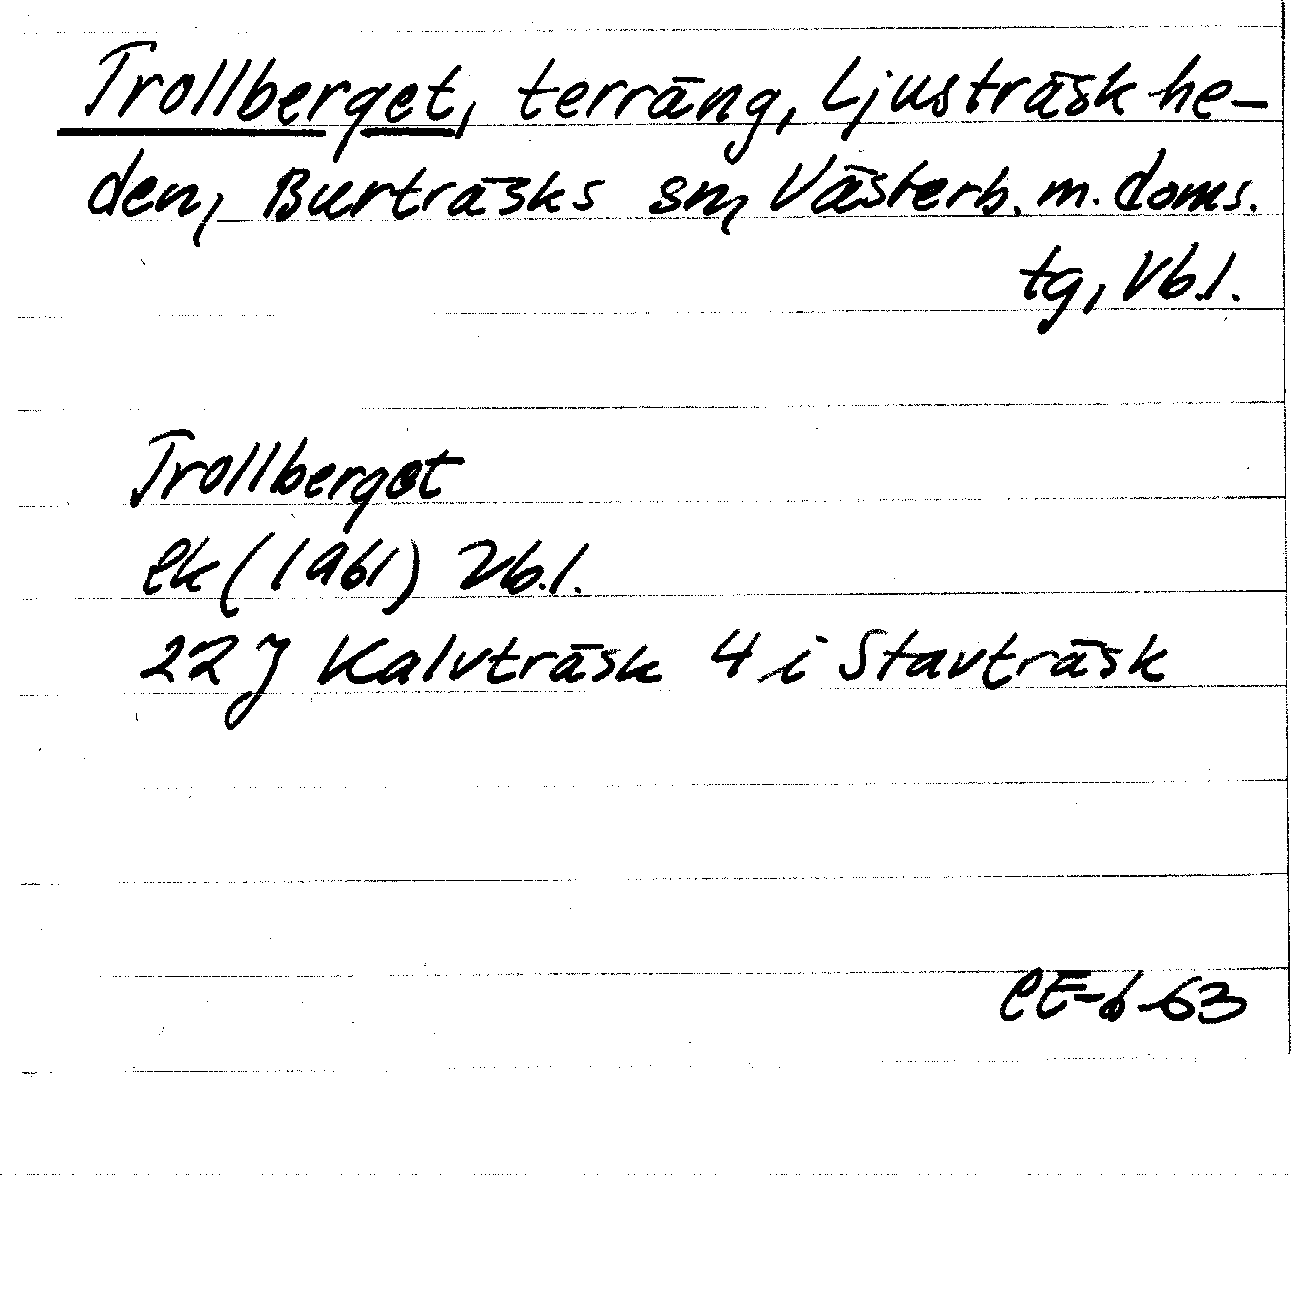 Trollberget, terräng, Ljusträskhe-
den, Burträsks sn, Västerb. m. doms.
tg, Vb.l.
Trollberget
ek (1961) Vb.l.
22J Kalvträsk 4 i Stavträsk
CE-d-63